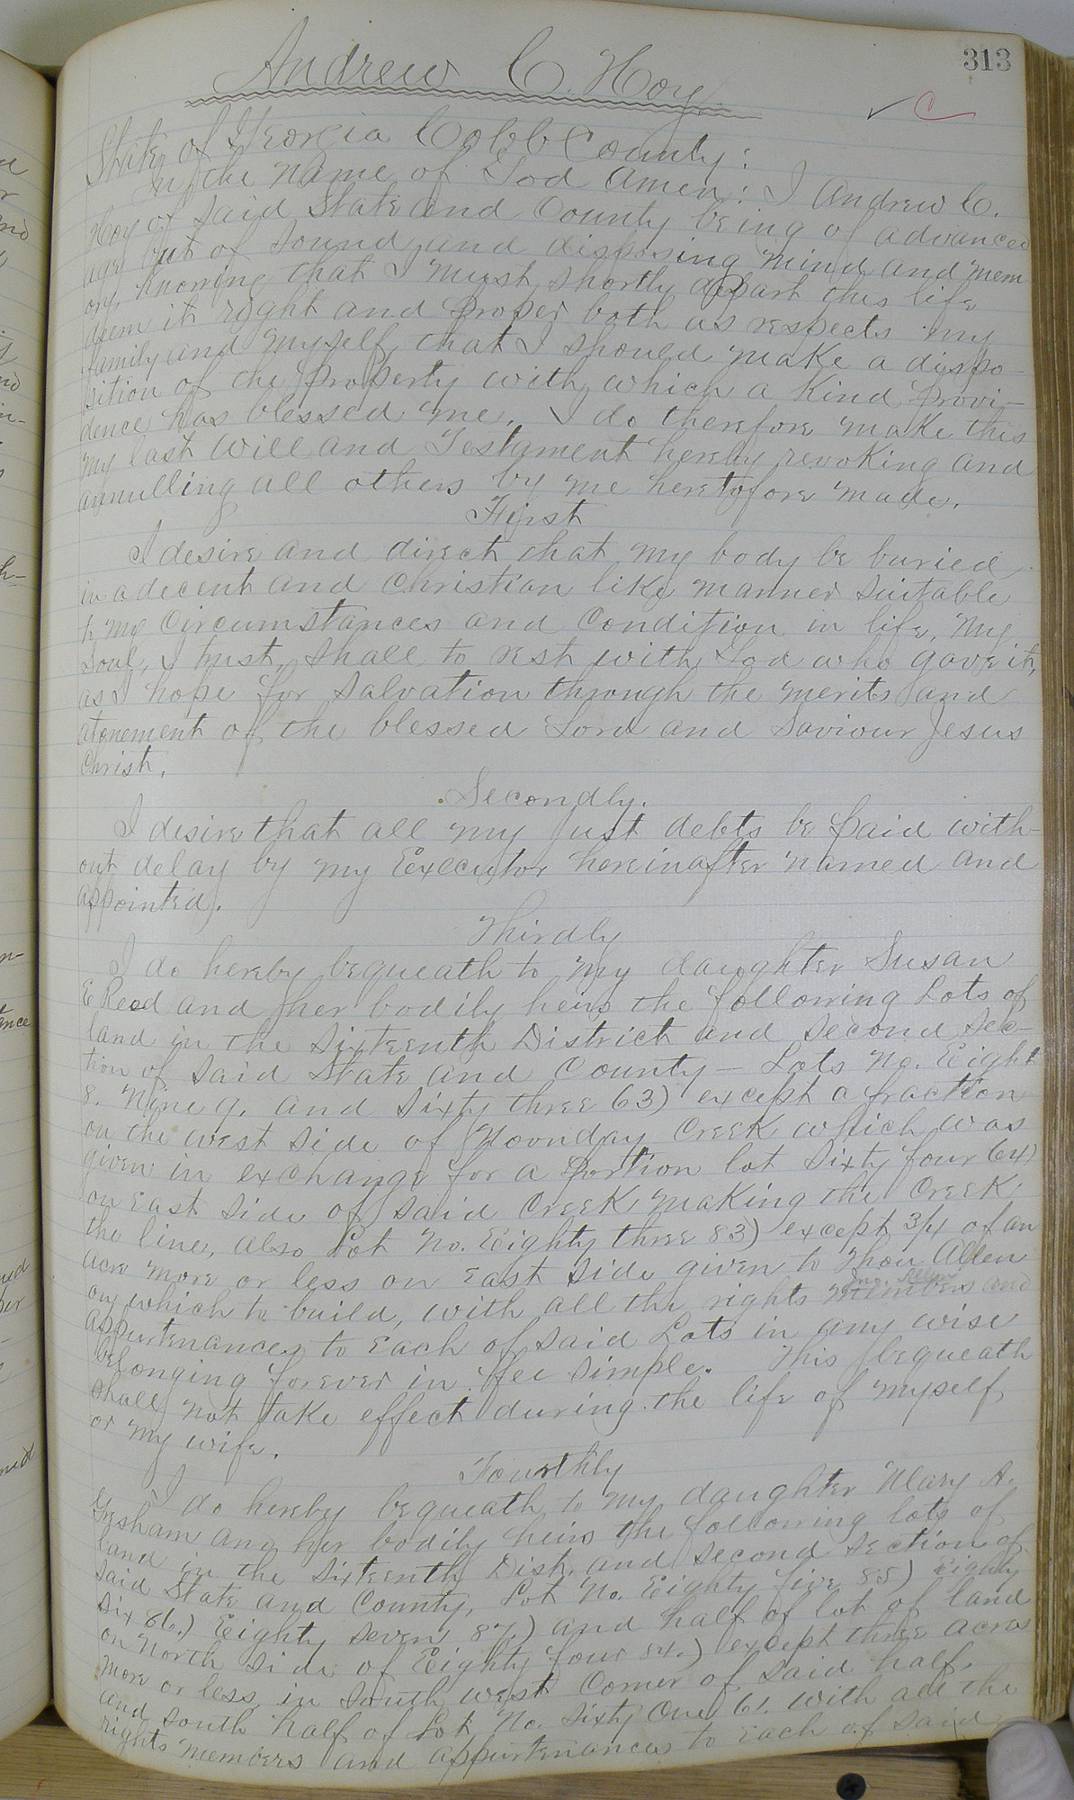 313
Andrew C. Hoy
✓ C
State of Georgia Cobb County:
In the name of God Amen: I Andrew C.
Hoy of said State and County being of advanced
age but of sound and disposing mind and mem
ory, knowing that I must shortly depart this life
deem it right and proper both as respects my
family and myself that I should make a dispo-
sition of the property with which a kind Provi-
dence has blessed me, I do therefore make this
my last will and Testament hereby revoking and
annulling all others by me heretofore made.
First
I desire and direct that my body be buried
in a decent and Christian like manner suitable
to my Circumstances and Condition in life, My
soul, I trust, shall to rest with God who gave it,
as I hope for salvation through the merits and
atonement of the blessed Lord and Saviour Jesus
Christ.
Secondly.
I desire that all my just debts be paid with-
out delay by my Executor hereinafter named and
appointed.
Thirdly
I do hereby bequeath to my daughter Susan
E Reed and her bodily heirs the following Lots of
land in the Sixteenth District and Second Sec-
tion of said State and County - Lots No. Eight
8. Nine 9. and Sixty three 63) except a fraction
on the west side of Noonday Creek which was
given in exchange for a portion lot Sixty four 64)
on East side of said Creek making the Creek
the line, also Lot No. Eighty three 83) except 3/4 of an
acre more or less on East side given to Thou Allen
on which to build, with all the rights members and
appurtenances to Each of said Lots in any wise
belonging forever in fee simple. This bequeath
shall not take effect during the life of myself
or my wife.
Fourthly
I do hereby bequeath to my daughter Mary A.
Gresham and her bodily heirs the following lots of
land in the Sixteenth Dist. and Second Section of
said State and County, Lot No. Eighty five 85) Eighty
six 86.) Eighty seven 87) and half of lot of land
on North side of Eighty four 84.) except three acres
more or less in South west Corner of said half.
and south half of Lot No. Sixty One 61. with all the
rights members and appurtenances to each of said